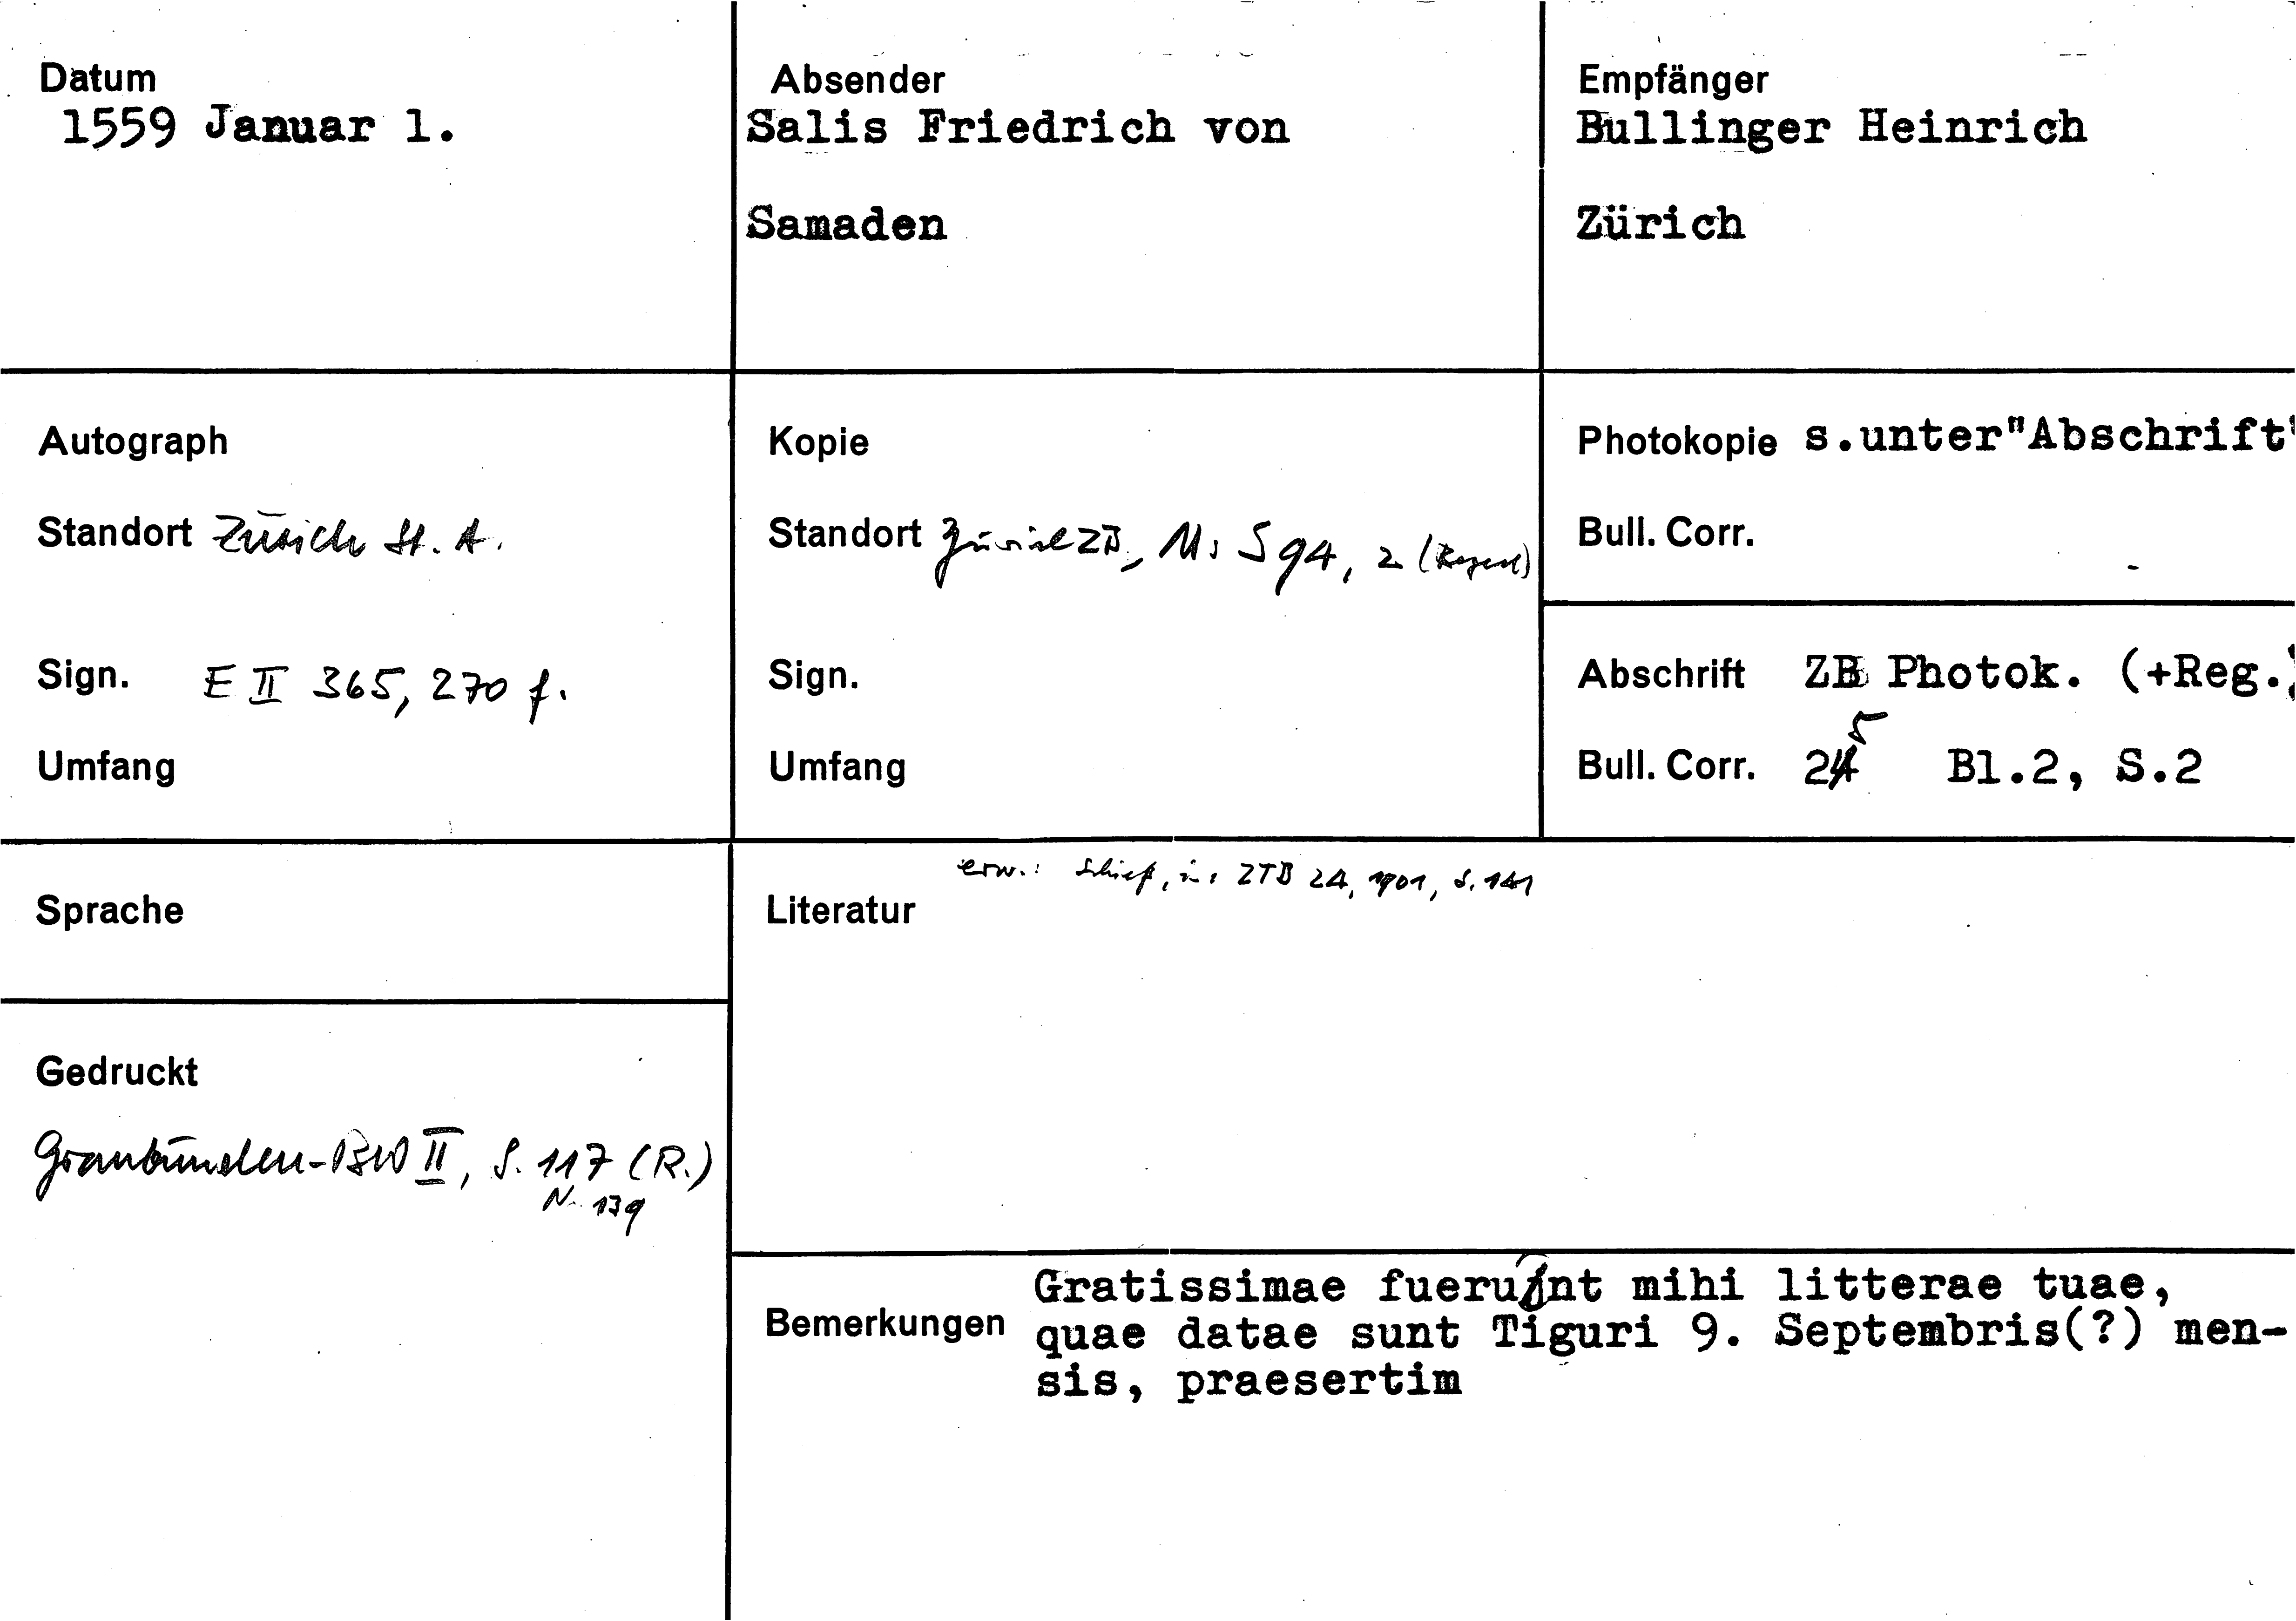 Datum
1559 Januar 1.
Absender
Salis Friedrich von
Samaden
Empfänger
Bullinger Heinrich
Zürich
Autograph
Standort Zürich St. A.
Sign. E II 365, 270 f.
Umfang
Kopie
Standort Zürich ZB, Ms S 94, 2 (Regest)
Sign.
Umfang
Photokopie s.unter"Abschrift"
Bull. Corr.
Abschrift ZB Photok. (+Reg.)
Bull. Corr. 245 Bl.2, S.2
Sprache
Gedruckt
Graubünden-BW II, S. 117 (R.)
Nr. 139
erw.: Schieß, in: ZTB 24, 1901, S. 141
Literatur
Bemerkungen
Gratissimae fuerunt mihi litterae tuae,
quae datae sunt Tiguri 9. Septembris(?) men-
sis, praesertim